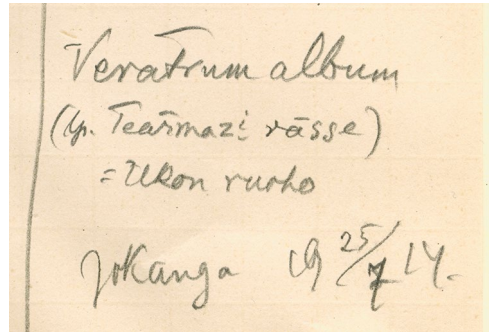 Veratrum album
(lp. Teārmazi rāsse)
= Ukon ruoho
Jokanga 19 25/7 14.